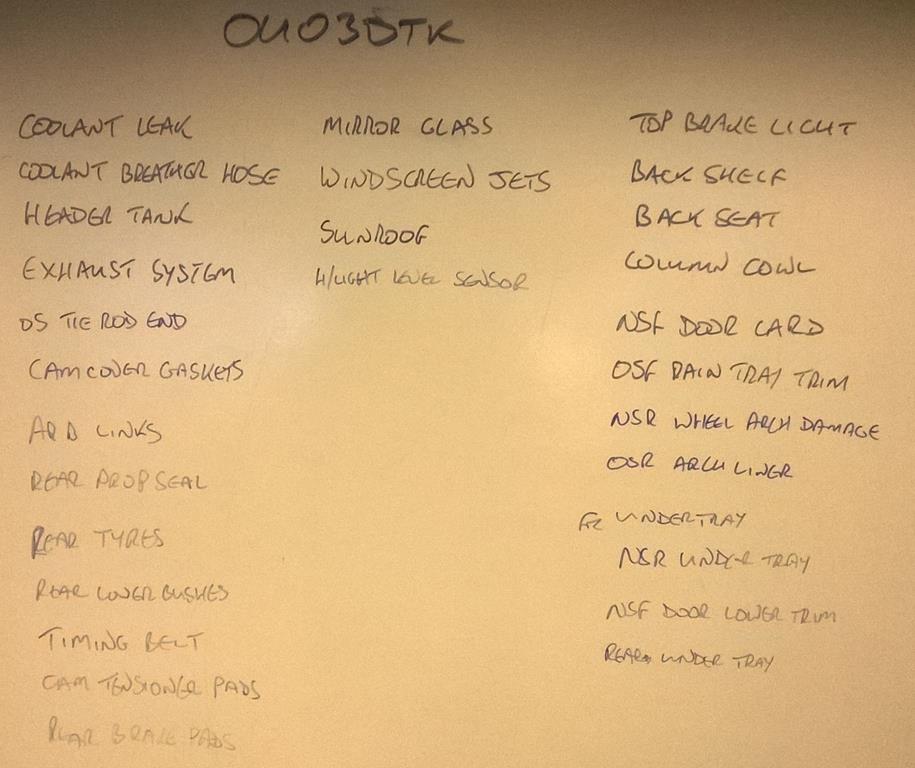 OU03DTK
COOLANT LEAK
COOLANT BREATHER HOSE
HEADER TANK
EXHAUST SYSTEM
OS TIE ROD END
CAM COVER GASKETS
ARB LINKS
REAR PROP SEAL
REAR TYRES
REAR LOWER BUSHES
TIMING BELT
CAM TENSIONER PADS
REAR BRAKE PADS
MIRROR GLASS
WINDSCREEN JETS
SUNROOF
H/LIGHT LEVEL SENSOR
TOP BRAKE LIGHT
BACK SHELF
BACK SEAT
COLUMN COWL
NSF DOOR CARD
OSF RAIN TRAY TRIM
NSR WHEEL ARCH DAMAGE
OSR ARCH LINER
UNDERTRAY
NSR UNDER TRAY
NSF DOOR LOWER TRIM
REAR UNDER TRAY